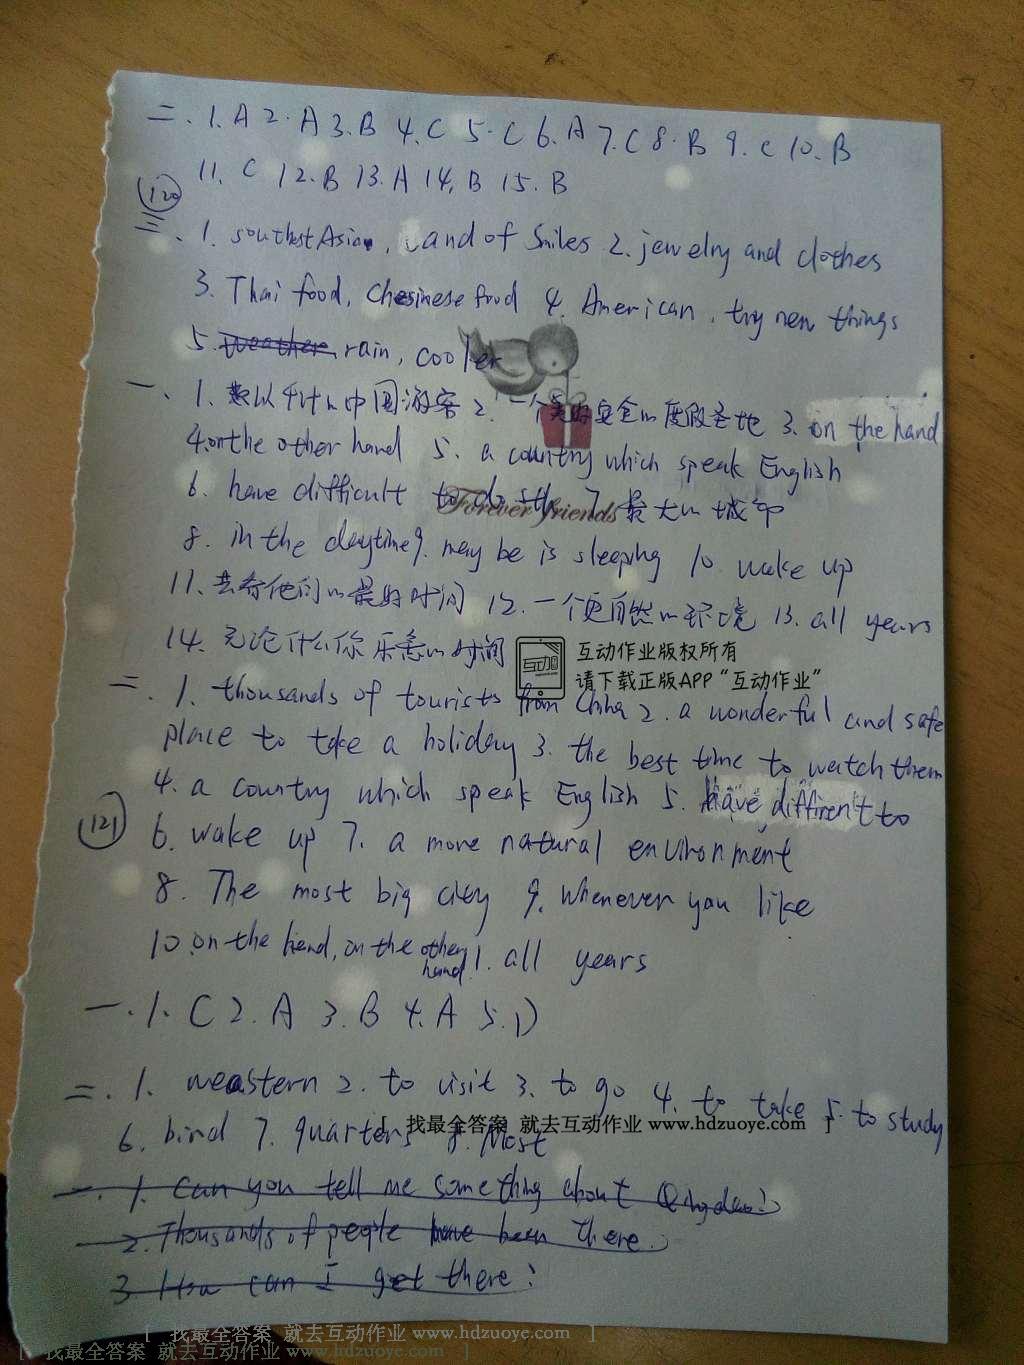 二. 1. A 2. A 3. B 4. C 5. C 6. A 7. C 8. B 9. C 10. B
11. C 12. B 13. A 14. B 15. B
120
三. 1. Land of Smiles 2. jewelry and clothes
3. Thai food, food 4. American, try new things
5. rain, cooler
一. 1. 中国游客 2. 一个美好安全的度假圣地 3. on the hand
4. on the other hand 5. a country which speak English
6. have difficult to do sth 7. 最大的城市
Forever friends
8. in the daytime 9. may be is sleeping 10. wake up
11. 去看他们的最好时间 12. 一个更自然的环境 13. all years
14. 无论什么你乐意的时间
互动作业版权所有
请下载正版APP“互动作业”
二. 1. thousands of tourists from China 2. a wonderful and safe
place to take a holiday 3. the best time to watch them
4. a country which speak English 5. have diffirent to
121
6. wake up 7. a more natural environment
8. The most big city 9. Whenever you like
10. on the hend, on the other hand 11. all years
一. 1. C 2. A 3. B 4. A 5. D
二. 1. weastern 2. to visit 3. to go 4. to take 5. to study
[ 找最全答案 就去互动作业 www.hdzuoye.com ]
6. bind 7. quarters 8. Most
一. 1. Can you tell me something about Qingdao?
2. Thousands of people have been there.
3 can I get there?
[ 找最全答案 就去互动作业 www.hdzuoye.com ]
[ 找最全答案 就去互动作业 www.hdzuoye.com ]